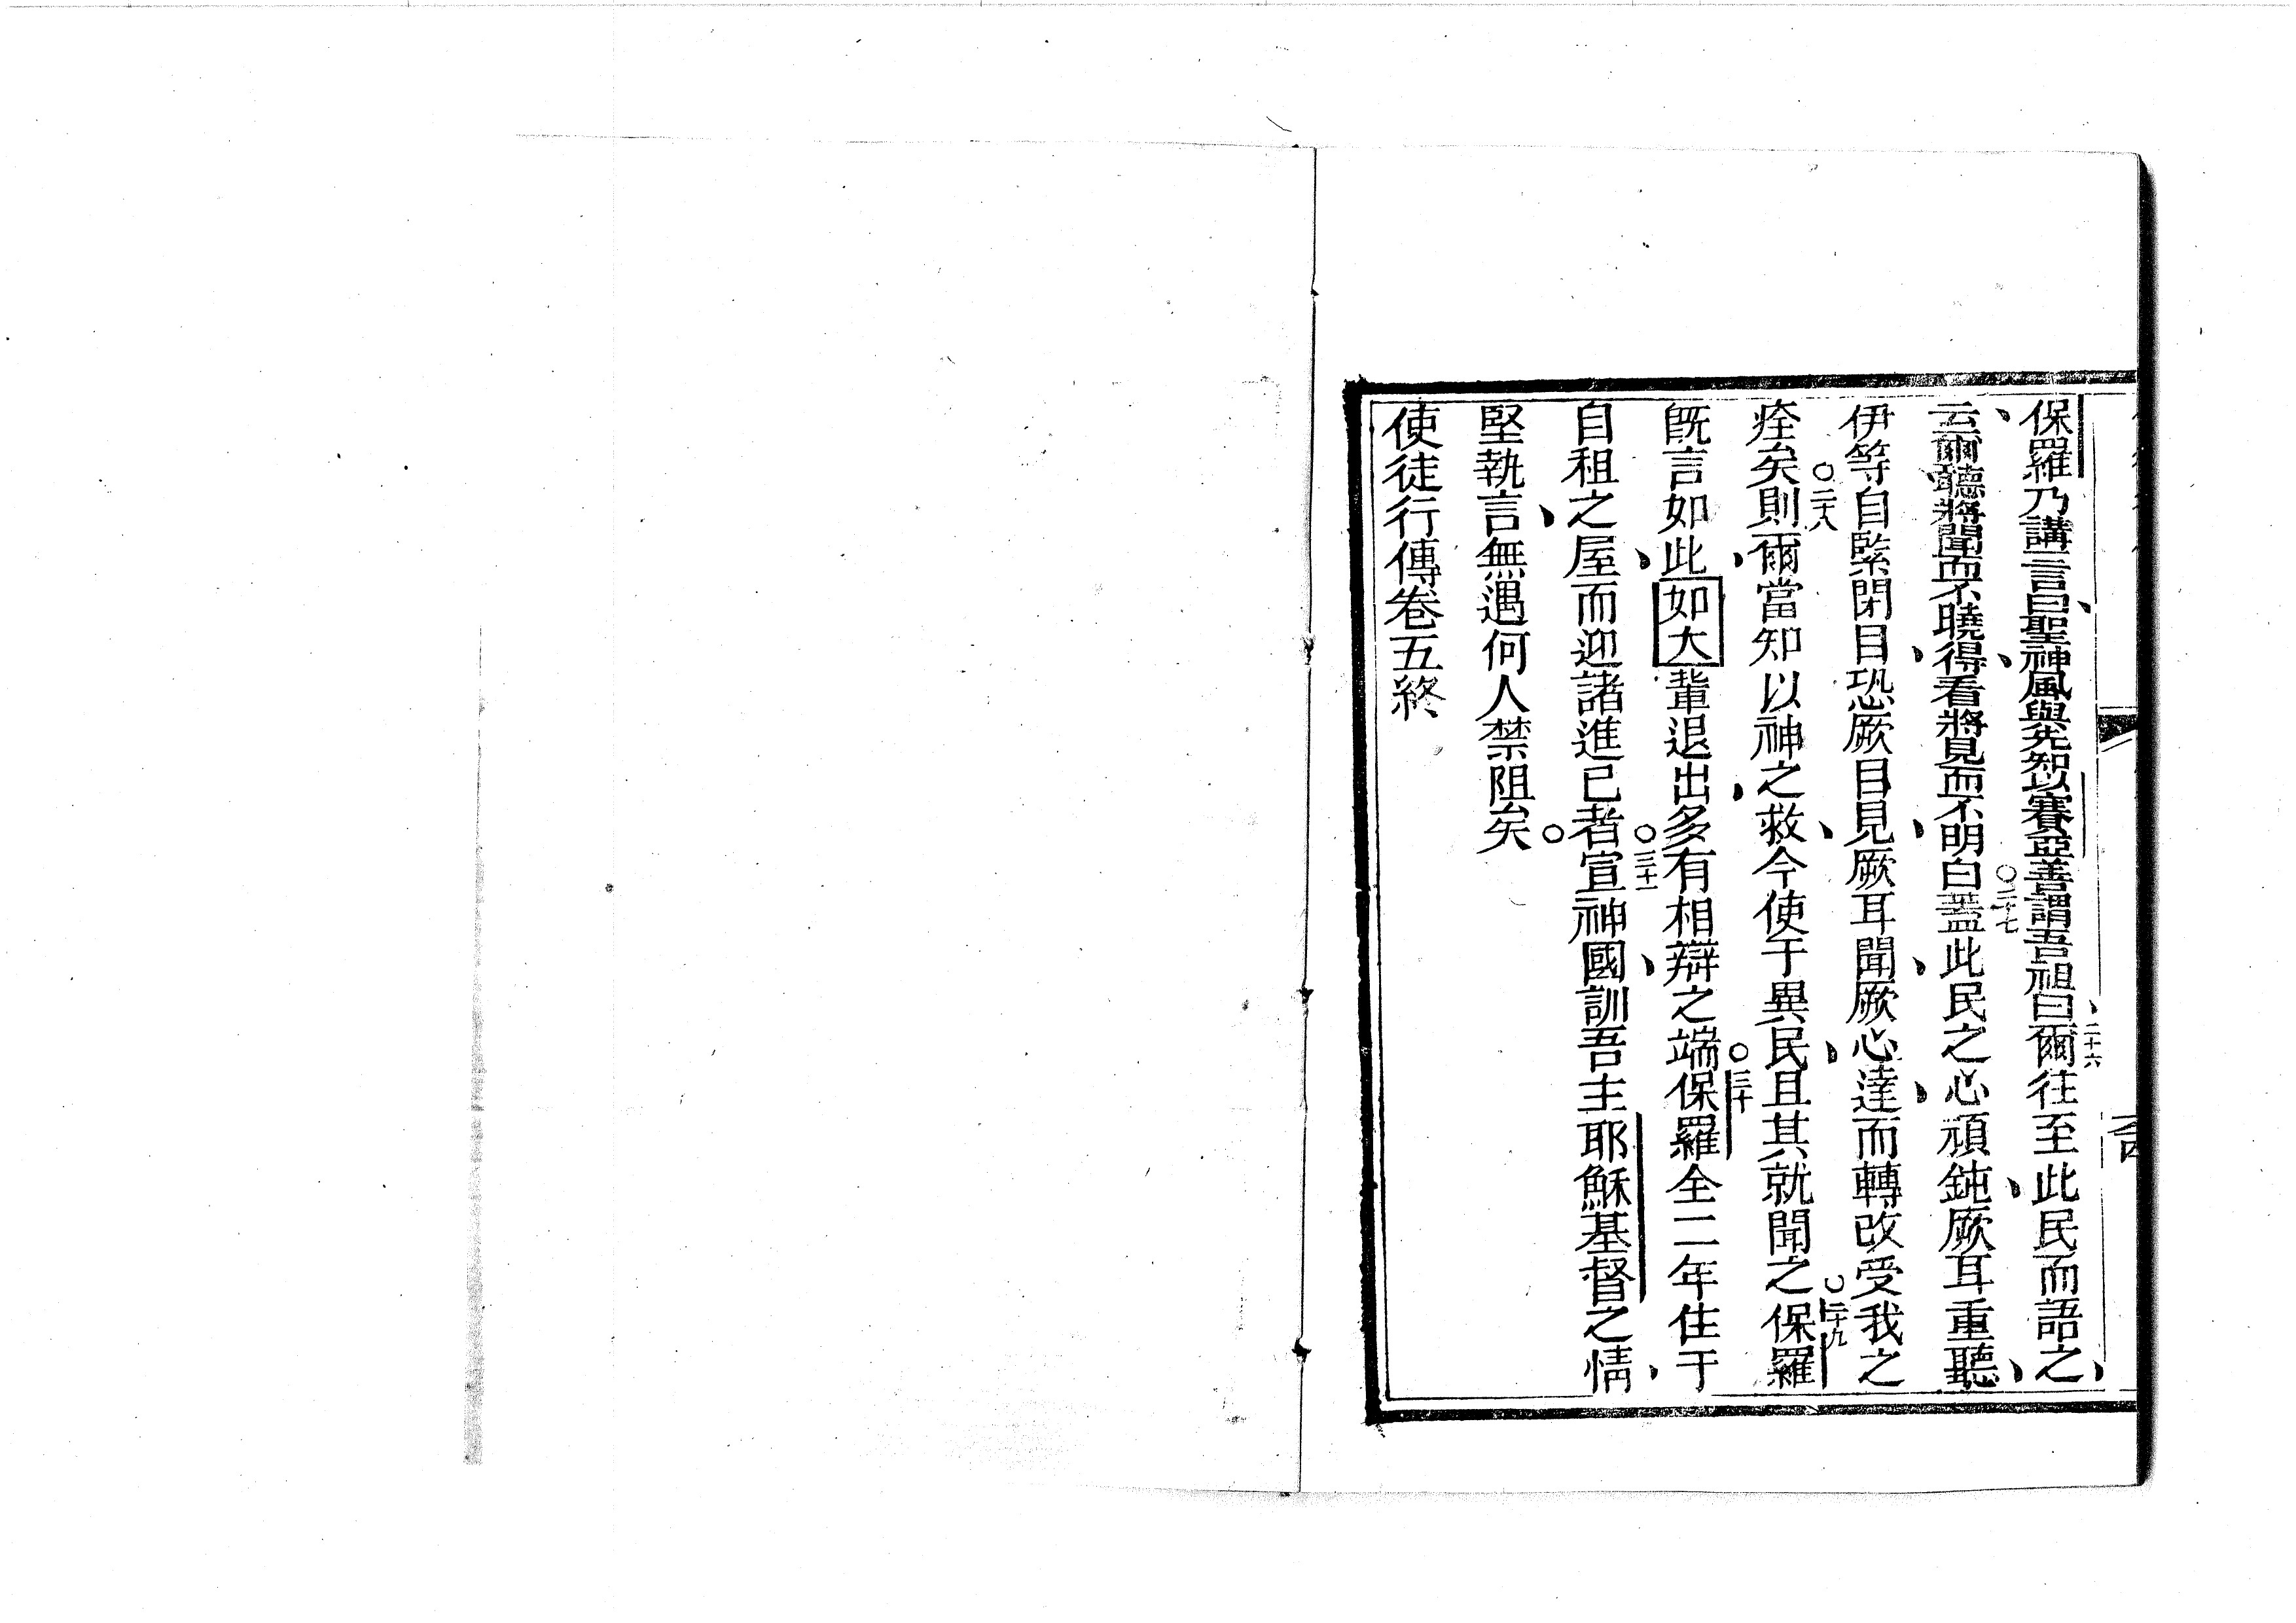 保羅乃講一言曰聖神風與先知以賽亞善謂吾祖曰二十六爾往至此民而語之
云爾聽將聞而不曉得看將見而不明白○二十七蓋此民之心頑鈍厥耳重聽
伊等自緊閉目恐厥目見厥耳聞厥心達而轉改受我之
痊矣○二十八則爾當知以神之救今使于異民且其就聞之○二十九保羅
既言如此如大輩退出多有相辯之端○三十保羅全二年住于
自租之屋而迎諸進已者○三十一宣神國訓吾主耶穌基督之情
堅執言無遇何人禁阻矣○
使徒行傳卷五終